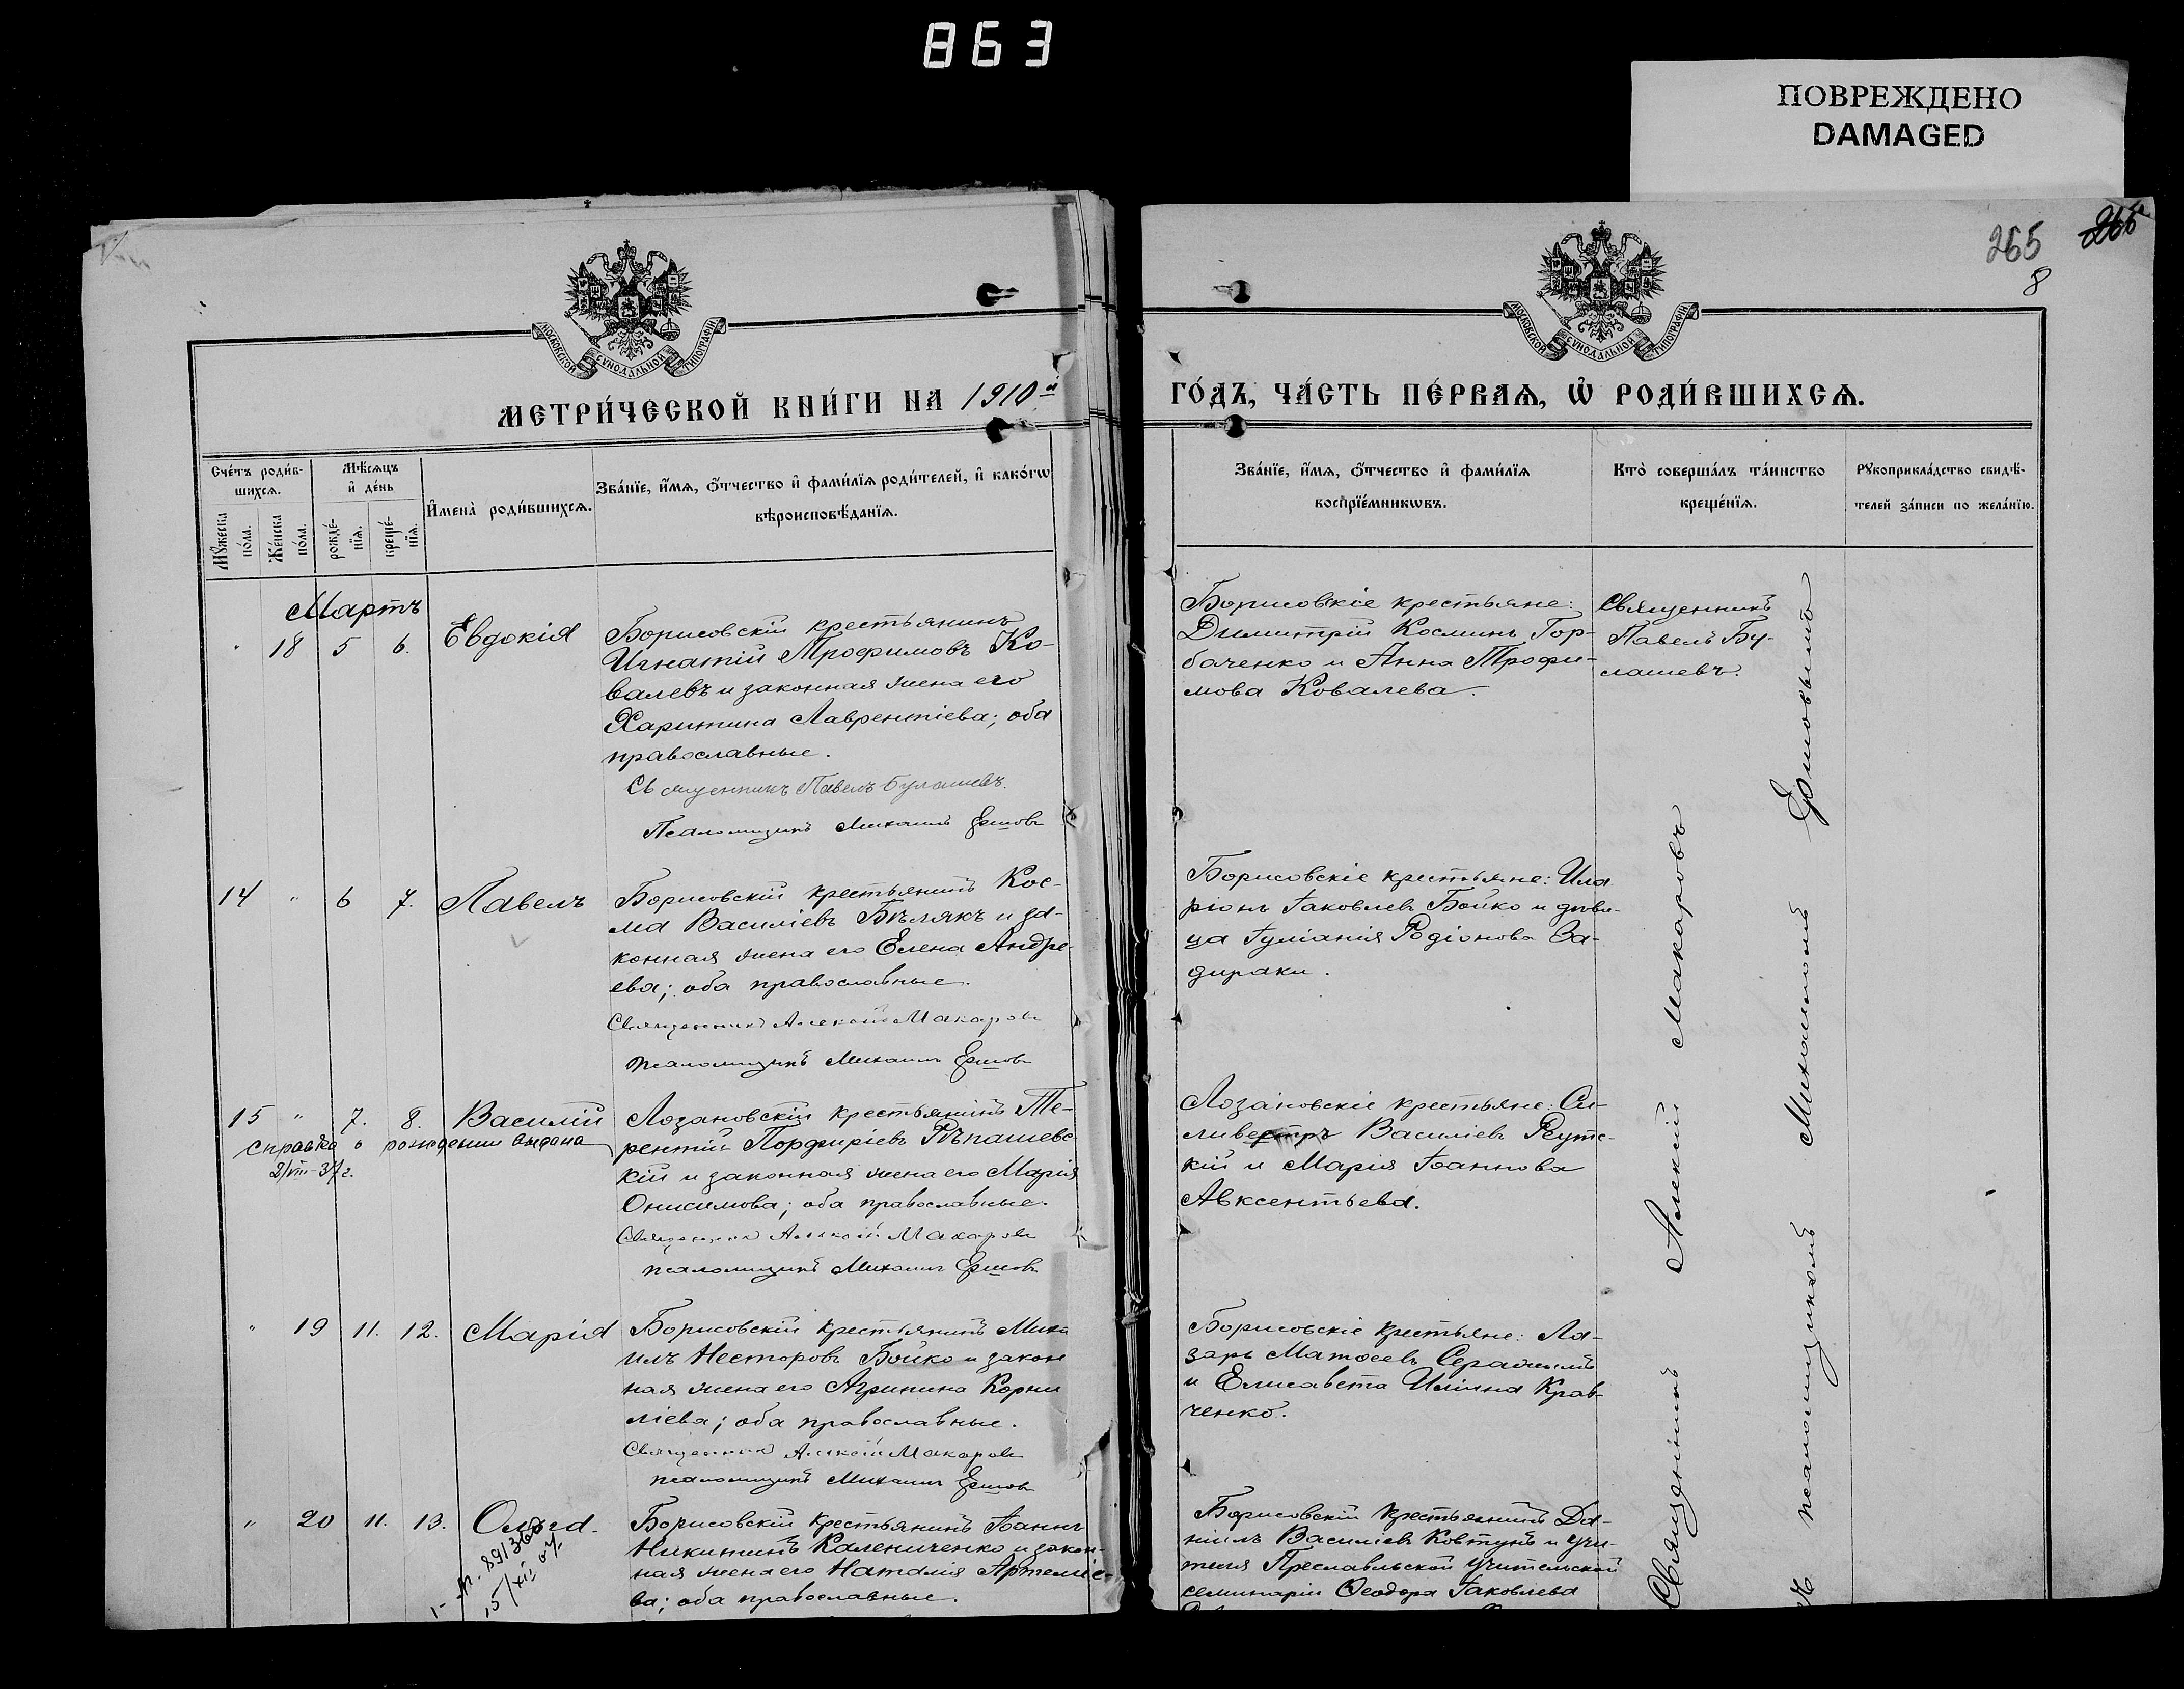 863
ПОВРЕЖДЕНО
DAMAGED
265
8
МОСКОВСКОЙ СѴНОДАЛЬНОЙ ТИПОГРАФІИ
МОСКОВСКОЙ СѴНОДАЛЬНОЙ ТИПОГРАФІИ
МЕТРИ́ЧЕСКОЙ КНИ́ГИ НА 1910й
ГО́ДЪ, ЧА́СТЬ ПЕ́РВАѦ, Ѽ РОДИ́ВШИХСѦ.
Сче́тъ роди́в-
шихсѧ.
Мꙋ́жеска
по́ла.
Же́нска
по́ла.
Мѣ́сѧцъ
и҆ де́нь
рожде́-
нїѧ.
креще́-
нїѧ.
И҆мена̀ роди́вшихсѧ.
Зва́нїе, и҆́мѧ, ѻ҆́тчество и҆ фами́лїѧ роди́телей, и҆ како́гѡ
вѣроисповѣ́данїѧ.
Зва́нїе, и҆́мѧ, ѻ҆́тчество и҆ фами́лїѧ
воспрїе́мникѡвъ.
Кто̀ соверша́лъ та́инство
креще́нїѧ.
Рꙋкоприкла́дство свидѣ́-
телей за́писи по жела́нїю.
Мартъ
" 18 5 6. Евдокія
Борисовскій крестьянинъ
Игнатій Трофимовъ Ко-
валевъ и законная жена его
Харитина Лаврентіева; оба
православные.
Священникъ Павелъ Булашевъ.
Псаломщикъ Михаилъ Ершовъ
Борисовскіе крестьяне:
Димитрій Косминъ Гор-
баченко и Анна Трофи-
мова Ковалева.
Священникъ
Павелъ Бу-
лашевъ.
14 " 6 7. Павелъ
Борисовскій крестьянинъ Кос-
ма Василіевъ Бѣлякъ и за-
конная жена его Елена Андре-
ева; оба православные.
Священникъ Алексій Макаровъ
псаломщикъ Михаилъ Ершовъ
Борисовскіе крестьяне: Ила
ріонъ Іаковлевъ Бойко и дѣви-
ца Іуліанія Родіонова За-
дираки.
15 " 7. 8. Василій
справка о рождении выдана
2/VIII-37г.
Лозановскій крестьянинъ Те-
рентій Порфиріевъ Рѣпашевс
кій и законная жена его Марія
Онисимова; оба православные.
Священникъ Алексій Макаровъ
псаломщикъ Михаилъ Ершовъ
Лозановскіе крестьяне: Си-
ливестръ Василіевъ Реутс-
кій и Марія Іоаннова
Авксентьева.
" 19 11. 12. Марія
Борисовскій крестьянинъ Миха
илъ Несторовъ Бойко и закон
ная жена его Агрипина Корни
ліева; оба православные.
Священникъ Алексій Макаровъ
псаломщикъ Михаилъ Ершовъ
Борисовскіе крестьяне: Ла-
зарь Матѳеевъ
и Елисавета Иліина Крав-
ченко.
" 20 11. 13. Ольга.
Борисовскій крестьянинъ Іоаннъ
Никитинъ Калениченко и закон-
ная жена его Наталія Артеміе-
ва; оба православные.
Борисовскій крестьянинъ Да-
ніилъ Василіевъ Ковтунъ и учи-
теля Преславльской учительской
семинаріи Ѳеодора Іаковлева
Священникъ Алексій Макаровъ
псаломщикомъ Михаиломъ Ершовымъ